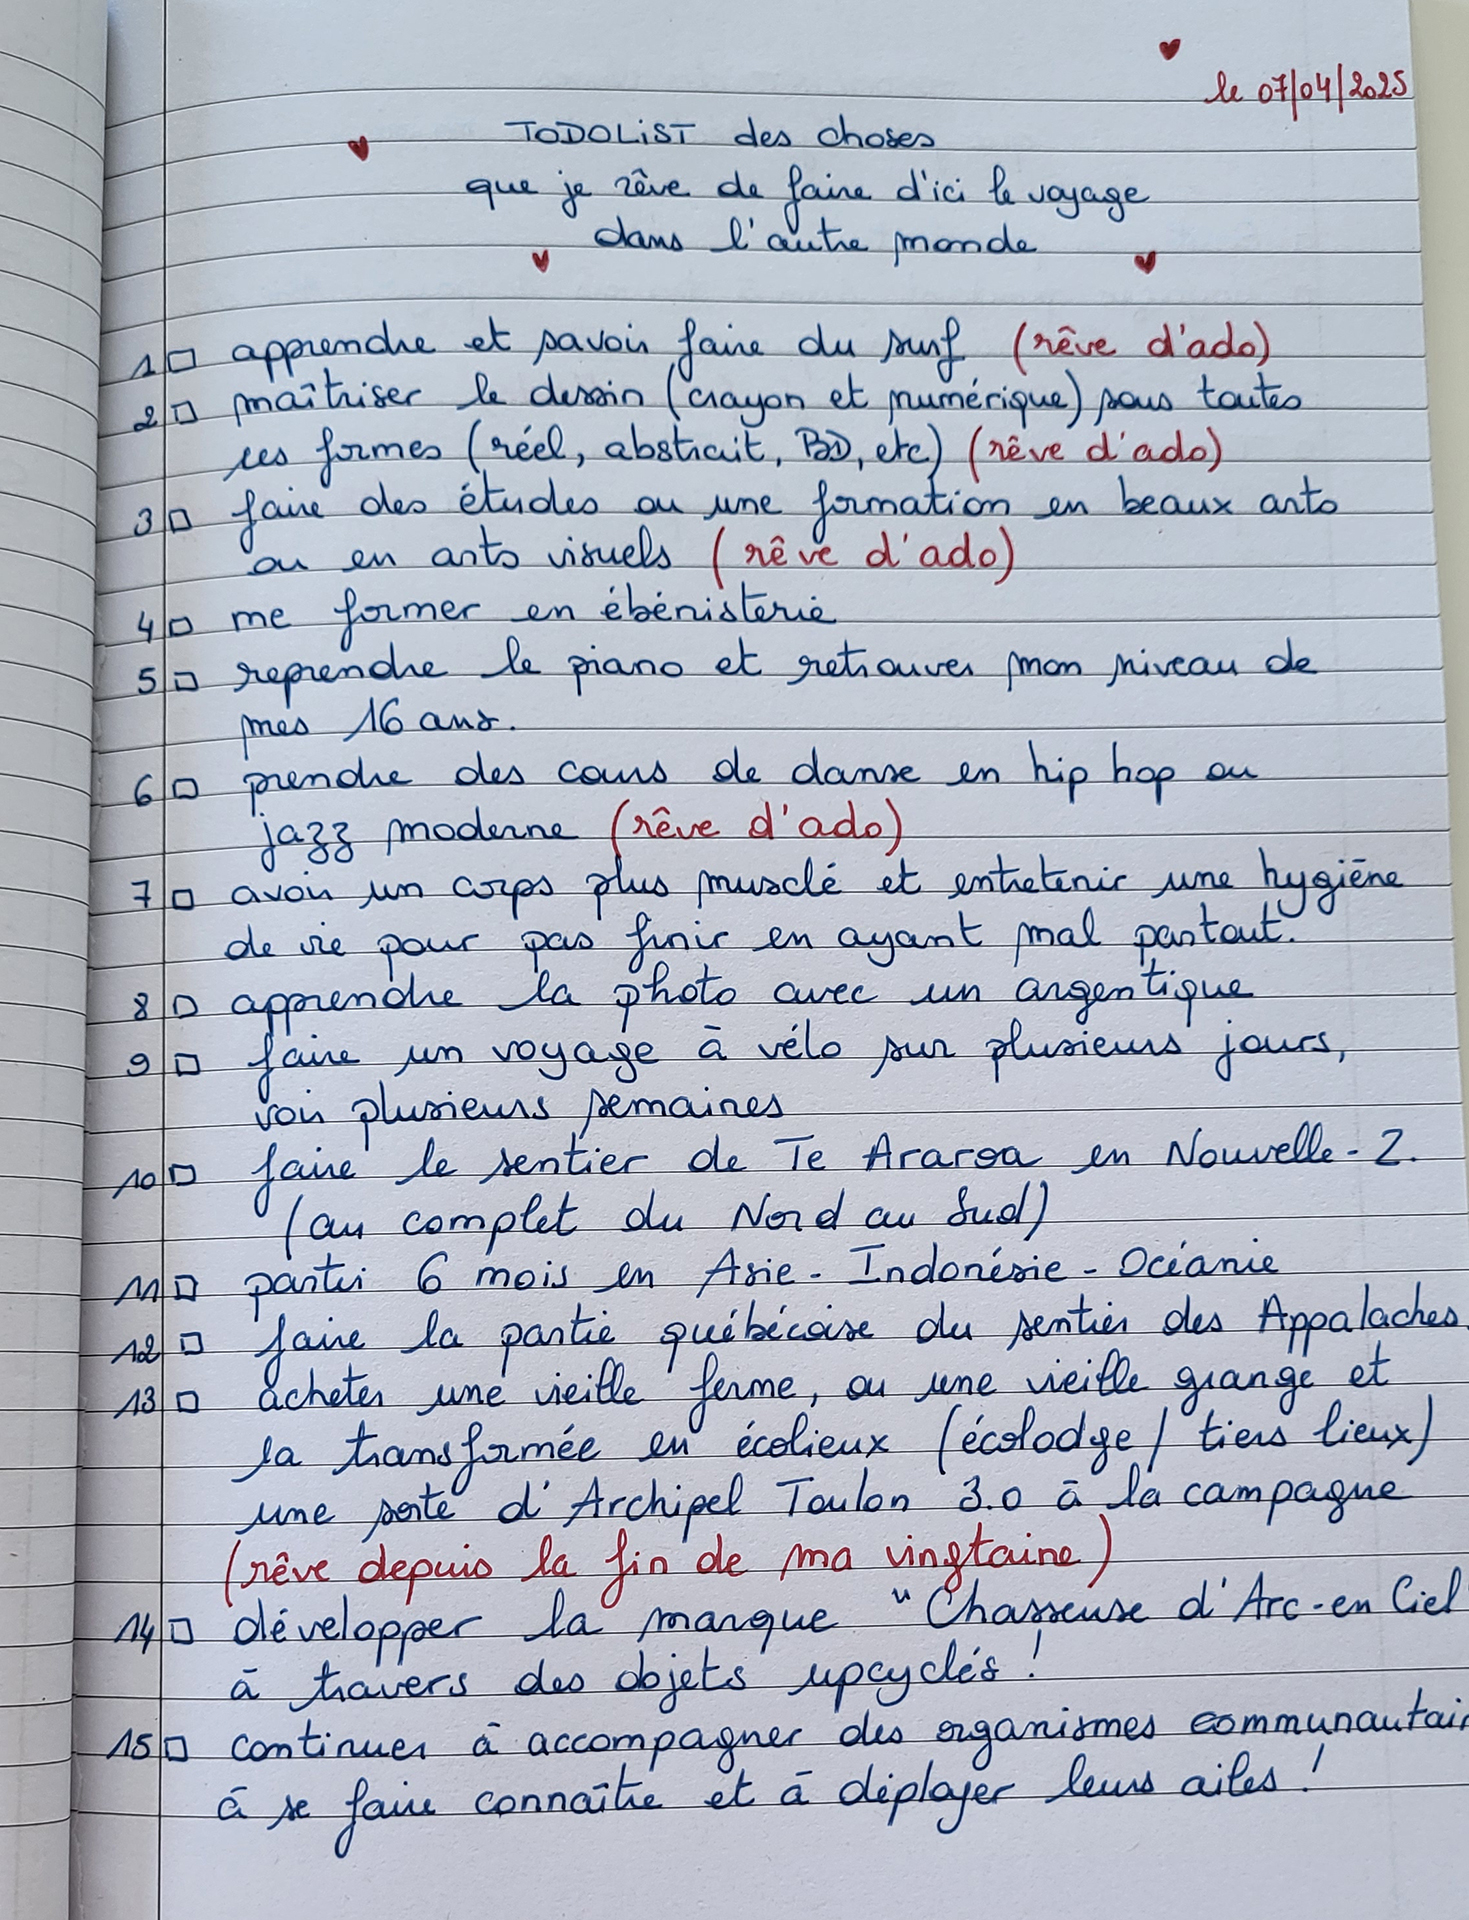 le 07/04/2025
TODOLIST des choses
que je rêve de faire d'ici le voyage
dans l'autre monde
1 apprendre et savoir faire du surf (rêve d'ado)
2 maîtriser le dessin (crayon et numérique) sous toutes
ses formes (réel, abstrait, BD, etc) (rêve d'ado)
3 faire des études ou une formation en beaux arts
ou en arts visuels (rêve d'ado)
4 me former en ébénisterie
5 reprendre le piano et retrouver mon niveau de
mes 16 ans.
6 prendre des cours de danse en hip hop ou
jazz moderne (rêve d'ado)
7 avoir un corps plus musclé et entretenir une hygiène
de vie pour pas finir en ayant mal partout.
8 apprendre la photo avec un argentique
9 faire un voyage à vélo sur plusieurs jours,
voir plusieurs semaines
10 faire le sentier de Te Araroa en Nouvelle-Z.
(au complet du Nord au Sud)
11 partir 6 mois en Asie - Indonésie - Océanie
12 faire la partie québécoise du sentier des Appalaches.
13 acheter une vieille ferme, ou une vieille grange et
la transformée en écolieux (écolodge / tiers lieux)
une sorte d'Archipel Toulon 3.0 à la campagne
(rêve depuis la fin de ma vingtaine)
14 développer la marque "Chasseuse d'Arc-en Ciel
à travers des objets upcyclés !
15 continuer à accompagner des organismes communautair
à se faire connaître et à déployer leurs ailes !